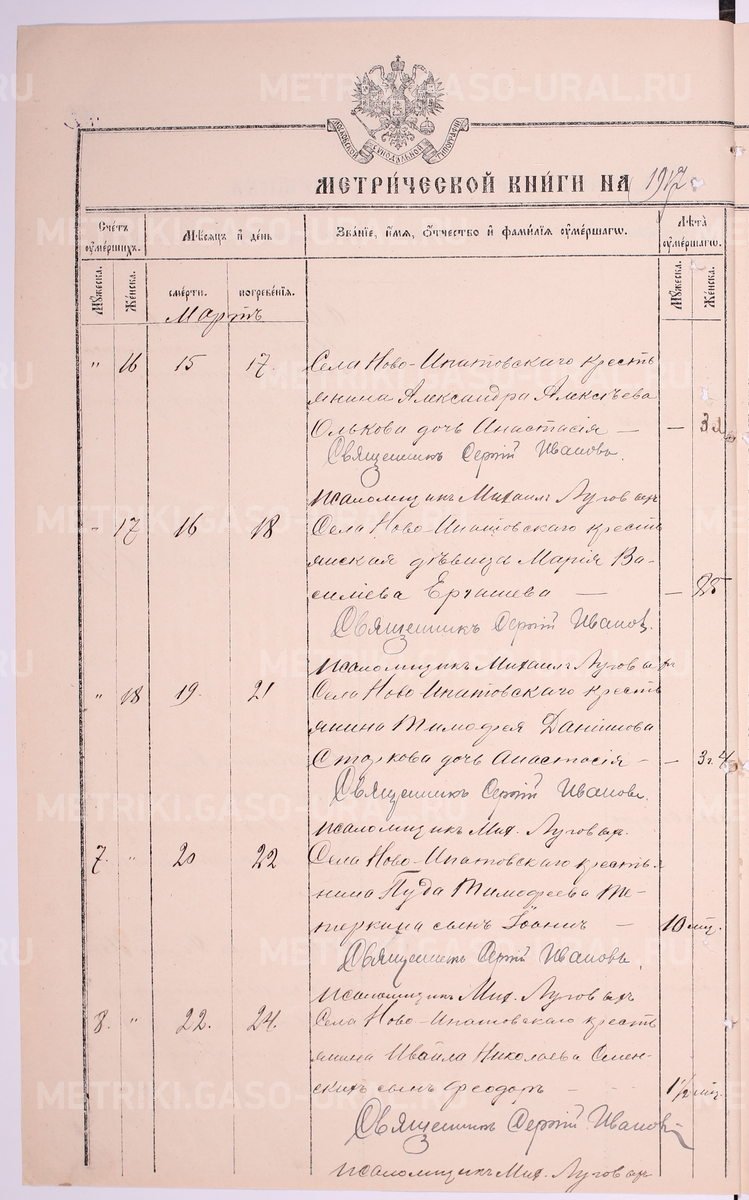 МОСКОВСКОЙ СѴНОДАЛЬНОЙ ТИПОГРАФІИ
МЕТРИ́ЧЕСКОЙ КНИ́ГИ НА 1917
Сче́тъ ᲂумершихъ.
Мѣсяцъ и день
Званіе, имя, Ѻтчество и фамилія ᲂумершагѡ.
Лѣта ᲂумершагѡ.
Мꙋжеска.
Женска.
смерти.
погребенія.
Мꙋжеска.
Женска.
Мартъ
" 16 15 17. Села Ново-Ипатовскаго кресть
янина Александра Алексѣева
Олькова дочь Анастасія — — 3
Священникъ Сергій Ивановъ.
псаломщикъ Михаил Луговыхъ
" 17 16 18 Села Ново-Ипатовскаго кресть
янская дѣвица Марія Ва-
силіева — —
Священникъ Сергій Иванов.
псаломщикъ Михаил Луговыхъ
" 18 19. 21 Села Ново-Ипатовскаго кресть
янина Тимофея Данилова
дочь Анастасія — — 3 г.
Священникъ Сергій Ивановъ.
псаломщикъ Мих. Луговыхъ.
7. " 20 22 Села Ново-Ипатовскаго крестья
нина Пуда Тимофеева Те-
теркина сынъ Іоаннъ — 10 мѣс.
Священникъ Сергій Ивановъ.
псаломщикъ Мих. Луговыхъ
8. " 22. 24. Села Ново-Ипатовскаго кресть
янина Николаева
сынъ Ѳеодоръ — 1½ мѣс.
Священникъ Сергій Ивановъ
псаломщикъ Мих. Луговыхъ
METRIKI.GASO-URAL.RU